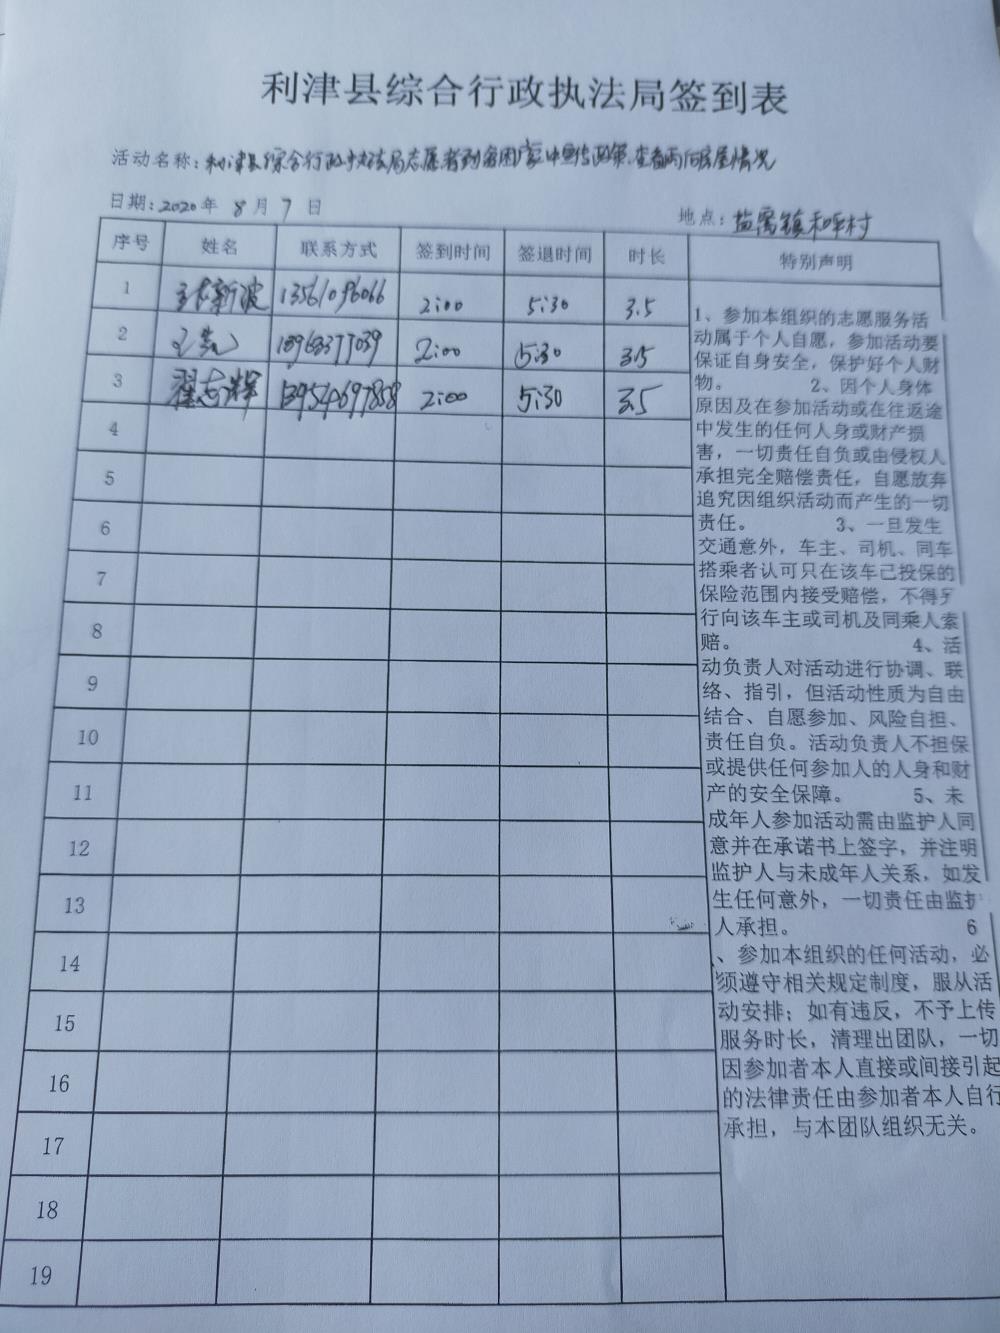 利津县综合行政执法局签到表
活动名称：利津县综合行政执法局志愿者到贫困家中宣传政策.查看雨后房屋情况
日期：2020年 8月 7 日
地点：盐窝镇和平村
序号 姓名 联系方式 签到时间 签退时间 时长 特别声明
1 张新波 13561096066 2:00 5:30 3.5
2 2:00 5:30 3.5
3 翟志辉 2:00 5:30 3.5
4
5
6
7
8
9
10
11
12
13
14
15
16
17
18
19
1、参加本组织的志愿服务活
动属于个人自愿，参加活动要
保证自身安全，保护好个人财
物。 2、因个人身体
原因及在参加活动或在往返途
中发生的任何人身或财产损
害，一切责任自负或由侵权人
承担完全赔偿责任，自愿放弃
追究因组织活动而产生的一切
责任。 3、一旦发生
交通意外，车主、司机、同车
搭乘者认可只在该车已投保的
保险范围内接受赔偿，不得另
行向该车主或司机及同乘人索
赔。 4、活
动负责人对活动进行协调、联
络、指引，但活动性质为自由
结合、自愿参加、风险自担、
责任自负。活动负责人不担保
或提供任何参加人的人身和财
产的安全保障。 5、未
成年人参加活动需由监护人同
意并在承诺书上签字，并注明
监护人与未成年人关系，如发
生任何意外，一切责任由监护
人承担。 6
、参加本组织的任何活动，必
须遵守相关规定制度，服从活
动安排；如有违反，不予上传
服务时长，清理出团队，一切
因参加者本人直接或间接引起
的法律责任由参加者本人自行
承担，与本团队组织无关。